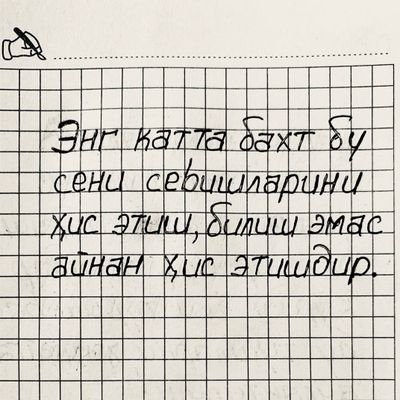 Энг катта бахт бу
сени севишларини
ҳис этиш, билиш эмас
айнан ҳис этишдир.